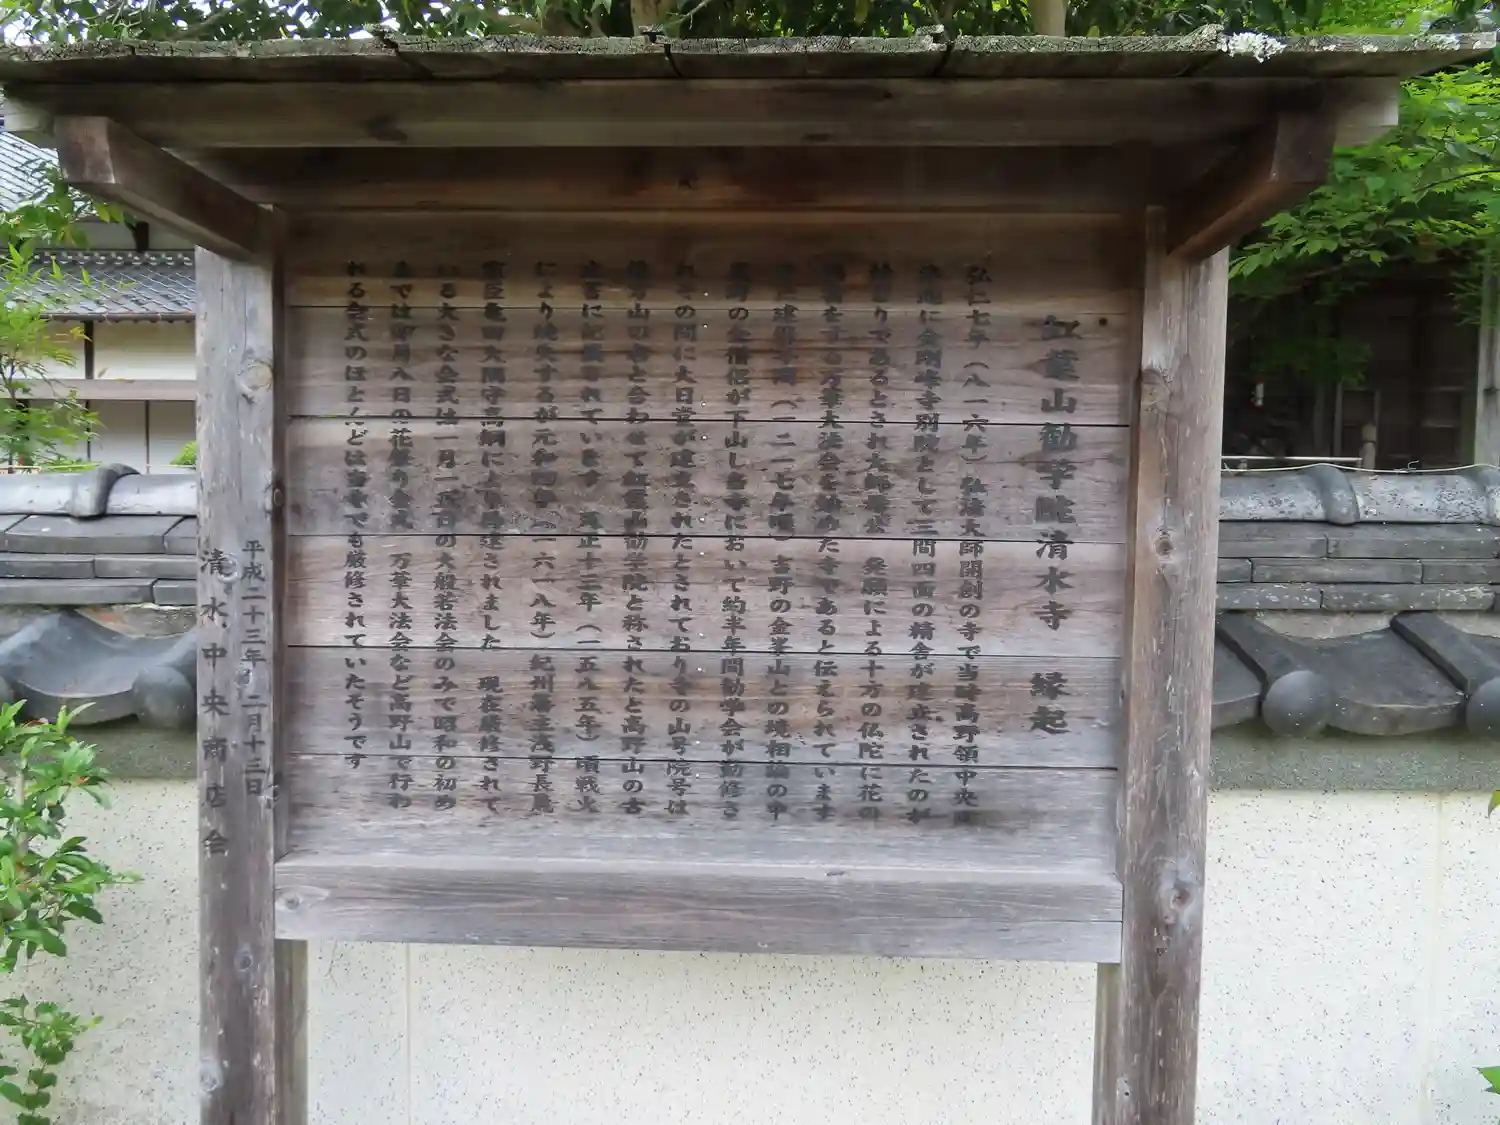 紅葉山勧学院清水寺 縁起
弘仁七年（八一六年）弘法大師開創の寺で当時高野領中央
に金剛峰寺別院として三間四面の精舎が建立されたのが
始まりであるとされ大師 発願による十方の仏陀に花の
をする万華大法会を始めた寺であると伝えられています
建保年間（一二一七年頃）吉野の金峯山との境相論の中
高野の全僧侶が下山し当寺において約半年間勧学会が勤修さ
れその間に大日堂が建立されたとされており寺の山号院号は
山の寺と合わせて紅葉山勧学院と称されたと高野山の古
文書に記載されています 天正十三年（一五八五年）頃戦火
により焼失するが元和四年（一六一八年）紀州藩主浅野長晟
家臣亀田大隅守高綱により再建されました 現在厳修されて
いる大きな会式は一月 日の大般若法会のみで昭和の初め
までは四月八日の花祭り会式 万華大法会など高野山で行わ
れる会式のほとんどは当寺でも厳修されていたそうです
平成二十三年十二月十三日
清水中央商店会